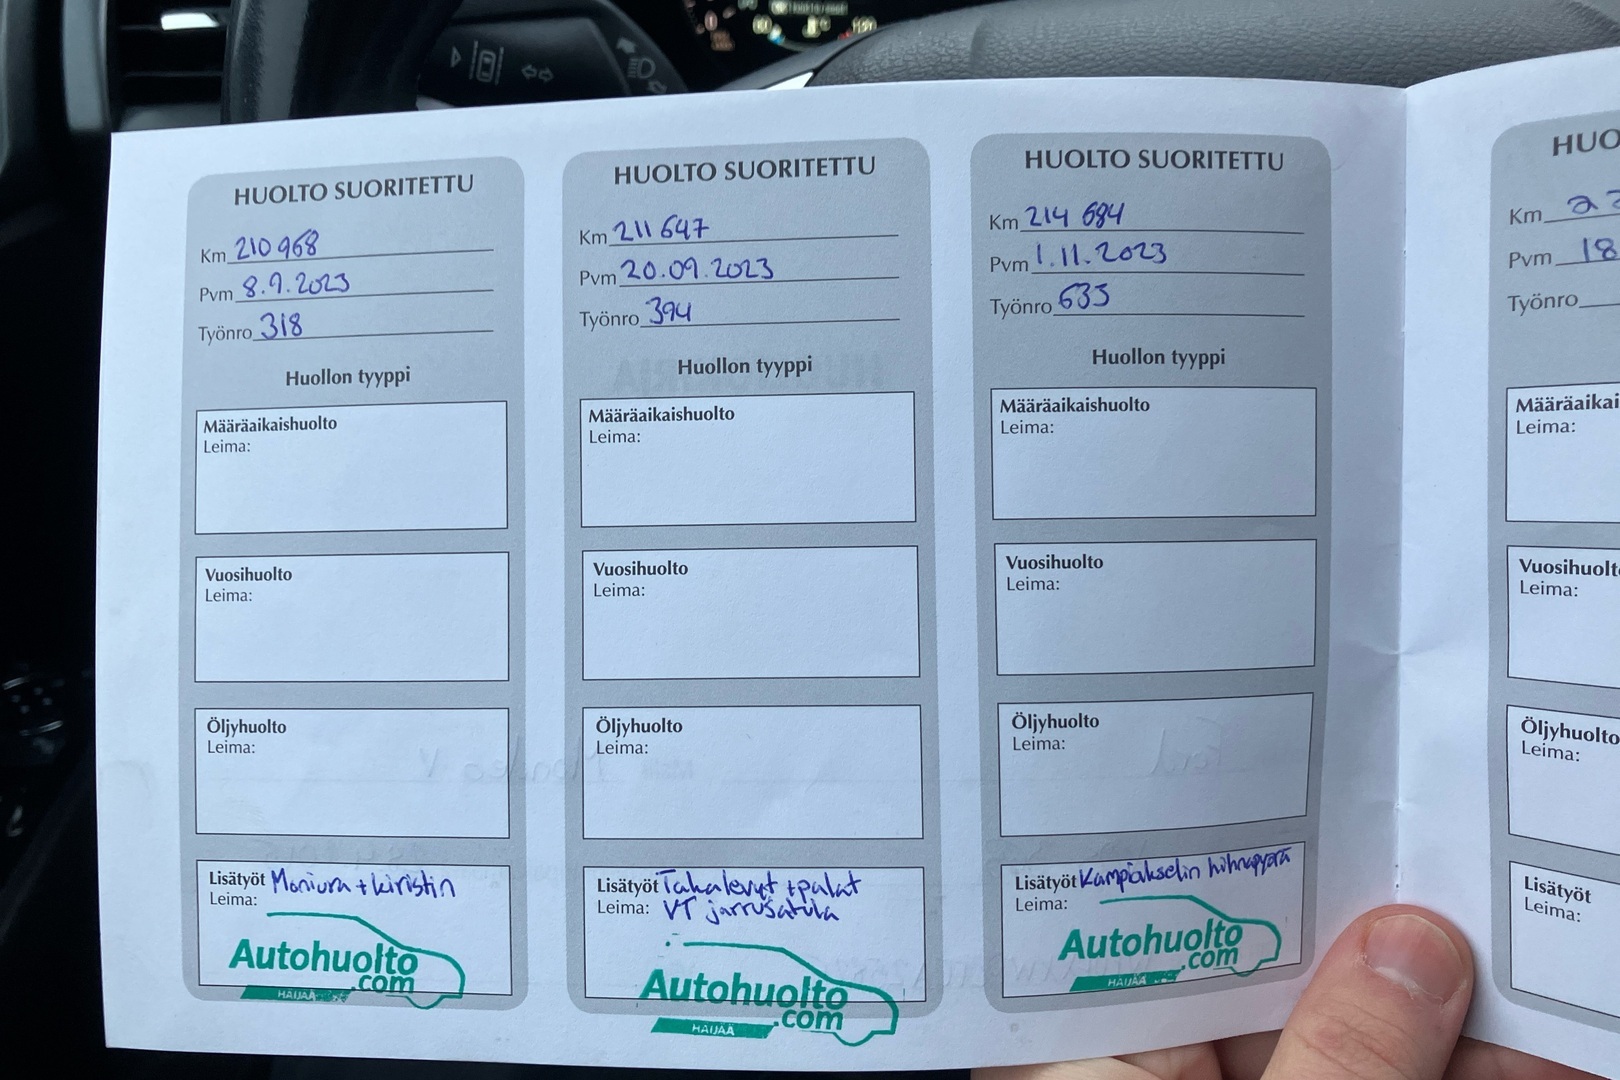 HUOLTO SUORITETTU
Km 210 968
Pvm 8.9.2023
Työnro 318
Huollon tyyppi
Määräaikaishuolto
Leima:
Vuosihuolto
Leima:
Öljyhuolto
Leima:
Lisätyöt Moniura + kiristin
Leima:
Autohuolto
.com
HAIJAA
HUOLTO SUORITETTU
Km 211 647
Pvm 20.09.2023
Työnro 394
Huollon tyyppi
Määräaikaishuolto
Leima:
Vuosihuolto
Leima:
Öljyhuolto
Leima:
Lisätyöt Takalevyt + palat
Leima: VT jarrusatula
Autohuolto
.com
HAIJAA
HUOLTO SUORITETTU
Km 214 684
Pvm 1.11.2023
Työnro 635
Huollon tyyppi
Määräaikaishuolto
Leima:
Vuosihuolto
Leima:
Öljyhuolto
Leima:
Lisätyöt Kampiakselin hihnapyörä
Leima:
Autohuolto
.com
HAIJAA
HUO
Km 22
Pvm 18
Työnro
Määräaikai
Leima:
Vuosihuolt
Leima:
Öljyhuolto
Leima:
Lisätyöt
Leima: